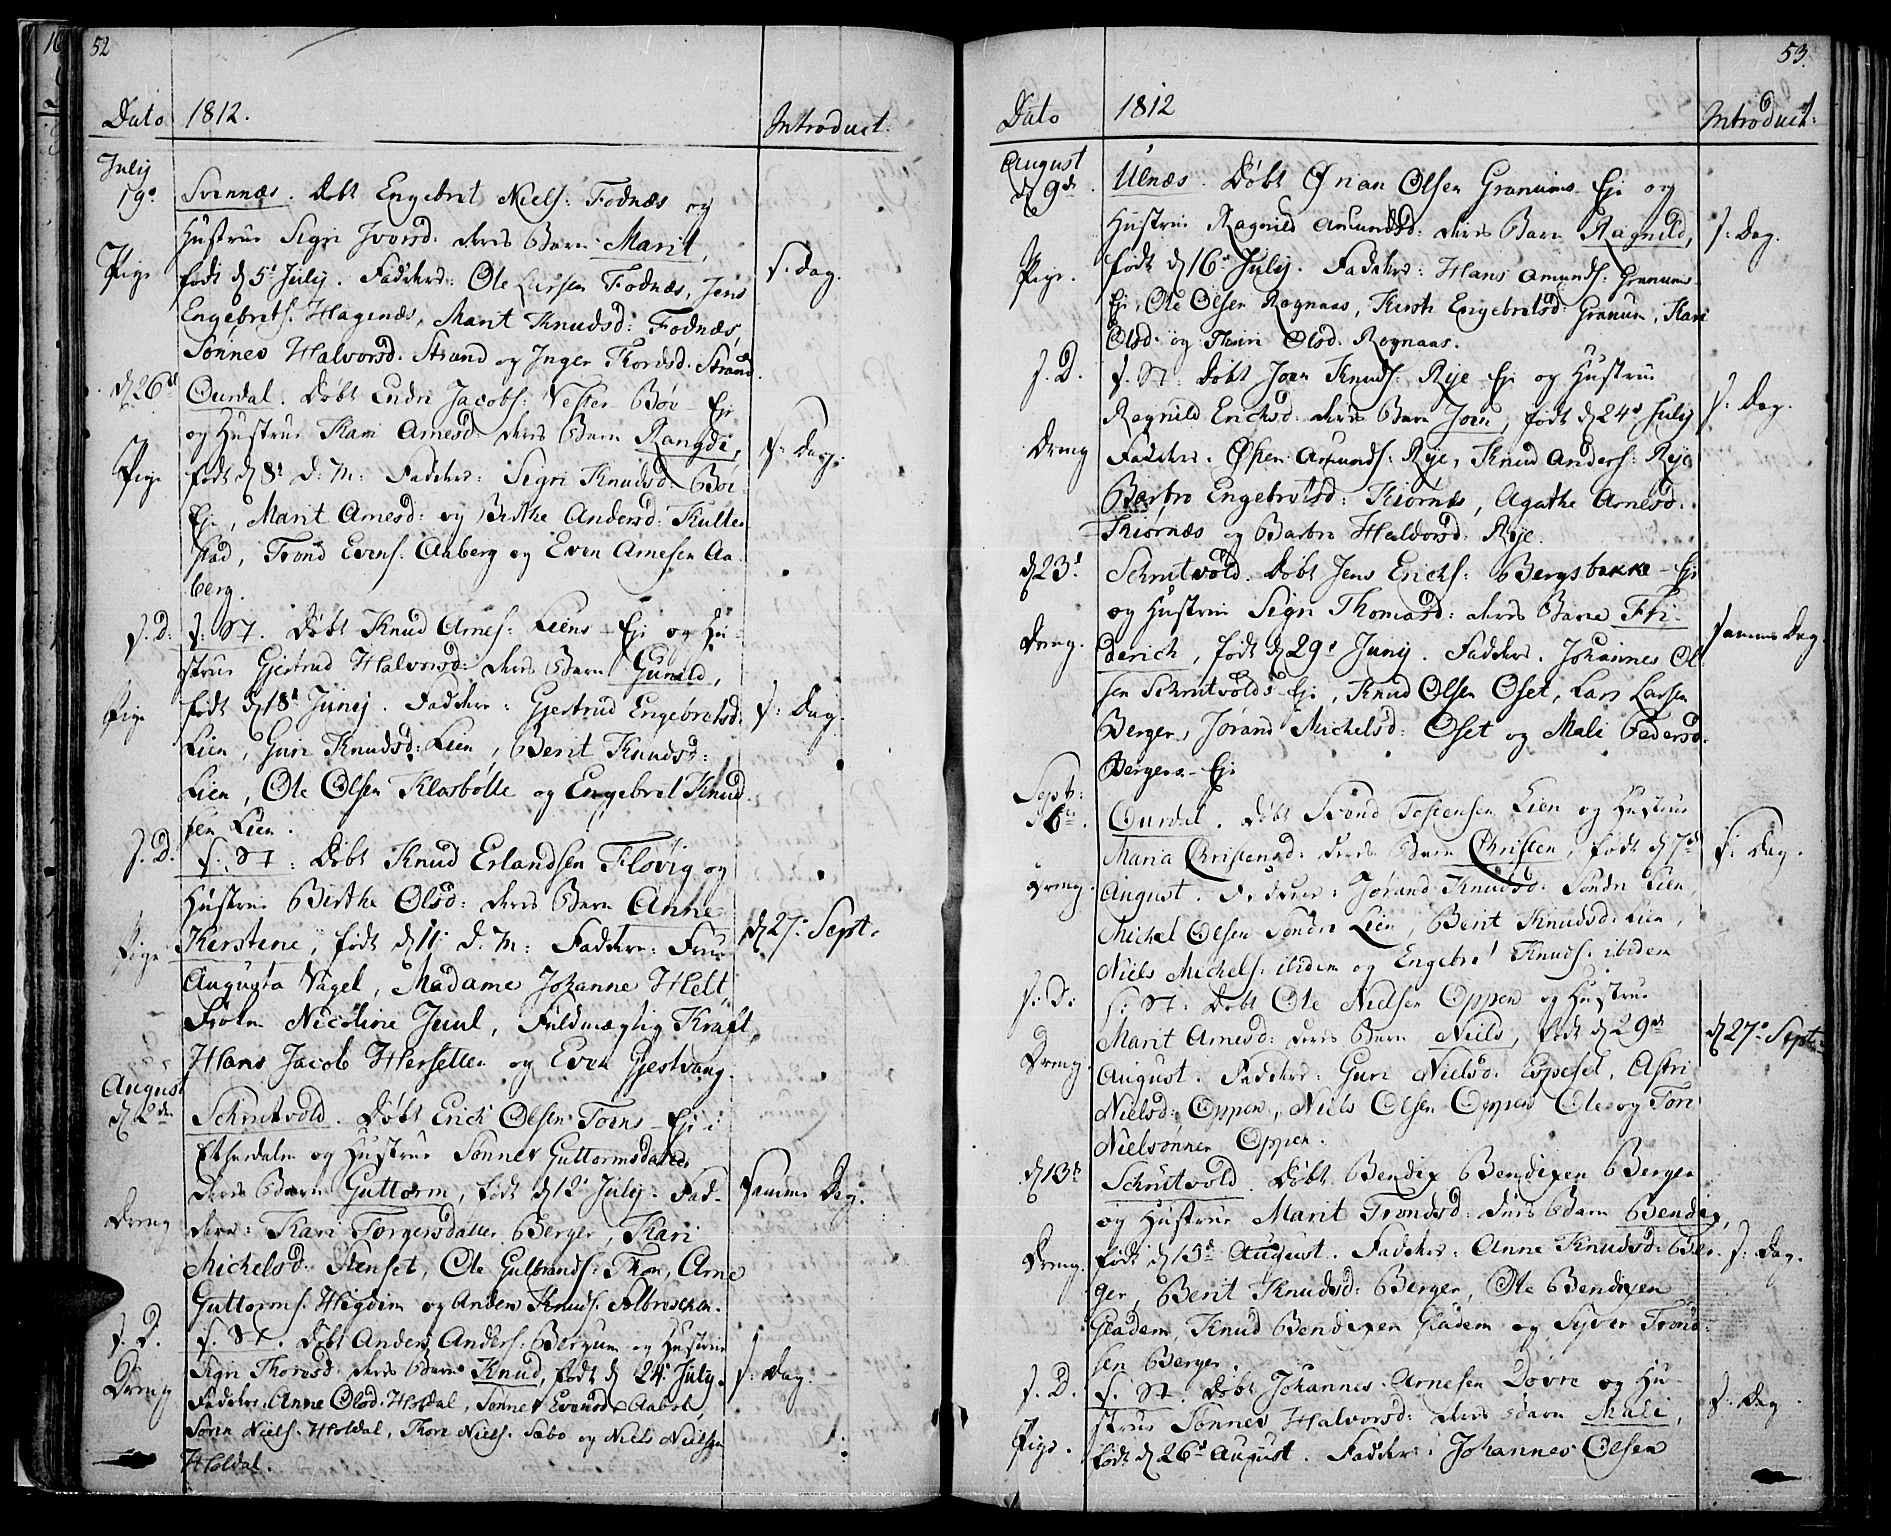 52
Dato 1812. Introduct:
July
19de Svennæs. Døbt Engebret Niels: Fodnæs og
Hustrue Sigri Iversd: deres Barn Marit,
Pige født d 5t July. Faddere: Ole Larsen Fodnæs, Jens s. Dag.
Engebrets. Hagenæs, Marit Knudsd: Fodnæs,
Sønnev Halvorsd. Strand og Inger Thordsd. Strand.
d 26de Ourdal. Døbt Endre Jacobs: Vester Bøe Eje
og Hustrue Kari Arnesd: deres Barn Rangdi, s: Dag.
Pige født d 8t d: M: Faddere: Sigri Knudsd: Bøe
Eje, Marit Arnesd: og Birthe Andersd: Kulte
stad, Trond Evens. Aaberg og Even Arnesen Aa
berg.
s. D: s: St. Døbt Knud Arnes: Liens Eje og Hu
strue Gjertrud Halvorsd: deres Barn Gunild,
Pige født d 18t Junij. Faddere: Gjertrud Engebretsd: s: Dag.
Lien, Guri Knudsd: Lien, Berit Knudsd:
Lien, Ole Olsen Klosbølle og Engebret Knud
sen Lien.
s. D. s: St: Døbt Knud Erlandsen Fløvig og
Hustrue Birthe Olsd: deres Barn Anne
Pige Kerstine, født d 11t d. M: Faddere: Frue d 27de Sept.
Augusta Vagel, Madame Johanne Helt,
Frøken Nicoline Juul, Fuldmægtig Kraft,
Hans Jacob Hersetten og Even Gjestvang.
August
d 2den Schrutvold. Døbt Erich Olsen Foens Eje i
Etnedalen og Hustrue Sønnev Guttormsdatter
deres Barn Guttorm, født d 12t July. Fad- samme Dag.
Dreng dere: Kari Torgersdatter Berger, Kari
Michelsd: Stenset, Ole Gulbrands: Thon, Arne
Guttorms. Højdim og Anders Knuds.
s. D. s. St. Døbt Anders Anders. Bergum og Hustrue
Sigri Thoresd: deres Barn Knud, født d 24 July. s: Dag.
Dreng Faddere. Anne Olsd. Holdal, Sønnev Evensd: Aabøl,
Søren Niels. Holdal, Thore Niels. Sæbo og Niels Nielsen
Holdal.
53.
Dato 1812 Introduct:
August
d 9de Ulnæs. Døbt Ørjan Olsen Granums Eje og
Hustrue Ragnild Amundsd: deres Barn Ragnild, s: Dag.
Pige. født d 16t July. Faddere: Hans Amunds. Granums
Eje, Ole Olsen Rognaas, Kirsti Engebretsd: Granum, Kari
Olsd: og Thuri Olsd. Rognaas.
s. D. s. St: Døbt Joen Knuds: Rye Eje og Hustrue
Ragnild Ericksd: deres Barn Joen, født d 24d July s: Dag.
Dreng Faddere. Østen Amunds: Rye, Knud Anders: Rye
Barbro Engebretsd: Kiørnæs, Agathe Arnesd:
Kiørnæs og Barbro Haldorsd: Rye.
d 23d. Schrutvold. Døbt Jens Erichs: Bergsbakke Eje
og Hustrue Sigri Thomasd: deres Barn Fri-
Dreng. derich, født d 29t Junij. Faddere. Johannes Ol samme Dag.
sen Schrutvolds Eje, Knud Olsen Oset, Lars Larsen
Berger, Jørand Michelsd: Oset og Mali Pedersd.
Bergers Eje
Sept:
d 6te. Ourdal. Døbt Trond Tostensen Lien og Hustrue
Maria Christensd: deres Barn Christen, født d 7de s: Dag.
Dreng. August. Faddere: Jørand Knudsd: Søndre Lien,
Michel Olsen Søndre Lien, Berit Knudsd: Lien,
Niels Michels: ibidem og Engebret Knuds: ibidem
s: D: s: St: Døbt Ole Nielsen Oppen og Hustrue
Marit Arnesd: deres Barn Niels, født d 29de d 27de Sept.
Dreng. August. Faddere: Guri Nielsd: Espeset, Astri
Nielsd: Oppen, Niels Olsen Oppen Ole og Tore
Nielsønner Oppen.
d 13t Schrutvold. Døbt Bendix Bendixen Berger
og Hustrue Marit Trondsd: deres Barn Bendix,
Dreng. født d 15d August. Faddere: Anne Knudsd: Ber- s: Dag.
ger, Berit Knudsd: Berger, Ole Bendixen
Gladem, Knud Bendixen Gladem og Syver Trond
sen Berger.
s. D. s. St. Døbt Johannes Arnesen Dovre og Hu- s. Dag.
strue Sønnev Halvorsd: deres Barn Mali,
Pige. født d 26d August. Faddere: Johannes Olsen